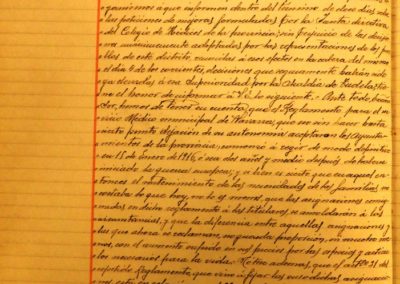 ganismos a que informen dentro del término de doce días sobre
las peticiones de mejoras formuladas por la Junta directiva
del Colegio de Médicos de la provincia; sin perjuicio de las decisio
nes unánimemente adoptadas por las representaciones de los pue
blos de este distrito reunidas a esos efectos en la cabeza del mismo
el día 9 de los corrientes, decisiones que seguramente habrán sido
ya elevadas a esa Superioridad por la Alcaldía de Tudela, ten
go el honor de informar a V.S. lo siguiente. Ante todo, Excmo
Sor, hemos de tener en cuenta, que el Reglamento para el ser
vicio Médico municipal de Navarra, que no sin hacer hasta
cierto punto dejación de su autonomía aceptaron los Ayunta-
mientos de la provincia, comenzó a regir de modo definitivo
en 15 de Enero de 1916, o sea dos años y medio después de haberse
iniciado la guerra europea; y si bien es cierto que en aquel en-
tonces el sostenimiento de las necesidades de las familias no
costaba lo que hoy, no lo es menos, que las asignaciones consig-
nadas en dicho reglamento a los titulares, se amoldaron a las
circunstancias, y que la diferencia entre aquellas asignaciones y
las que ahora se reclaman, no guarda proporción, en nuestro
con el aumento sufrido en sus precios por las especies y artícu
los necesarios para la vida. Notese además, que el artº 31 del
Reglamento, que vino a fijar las susodichas asignacio